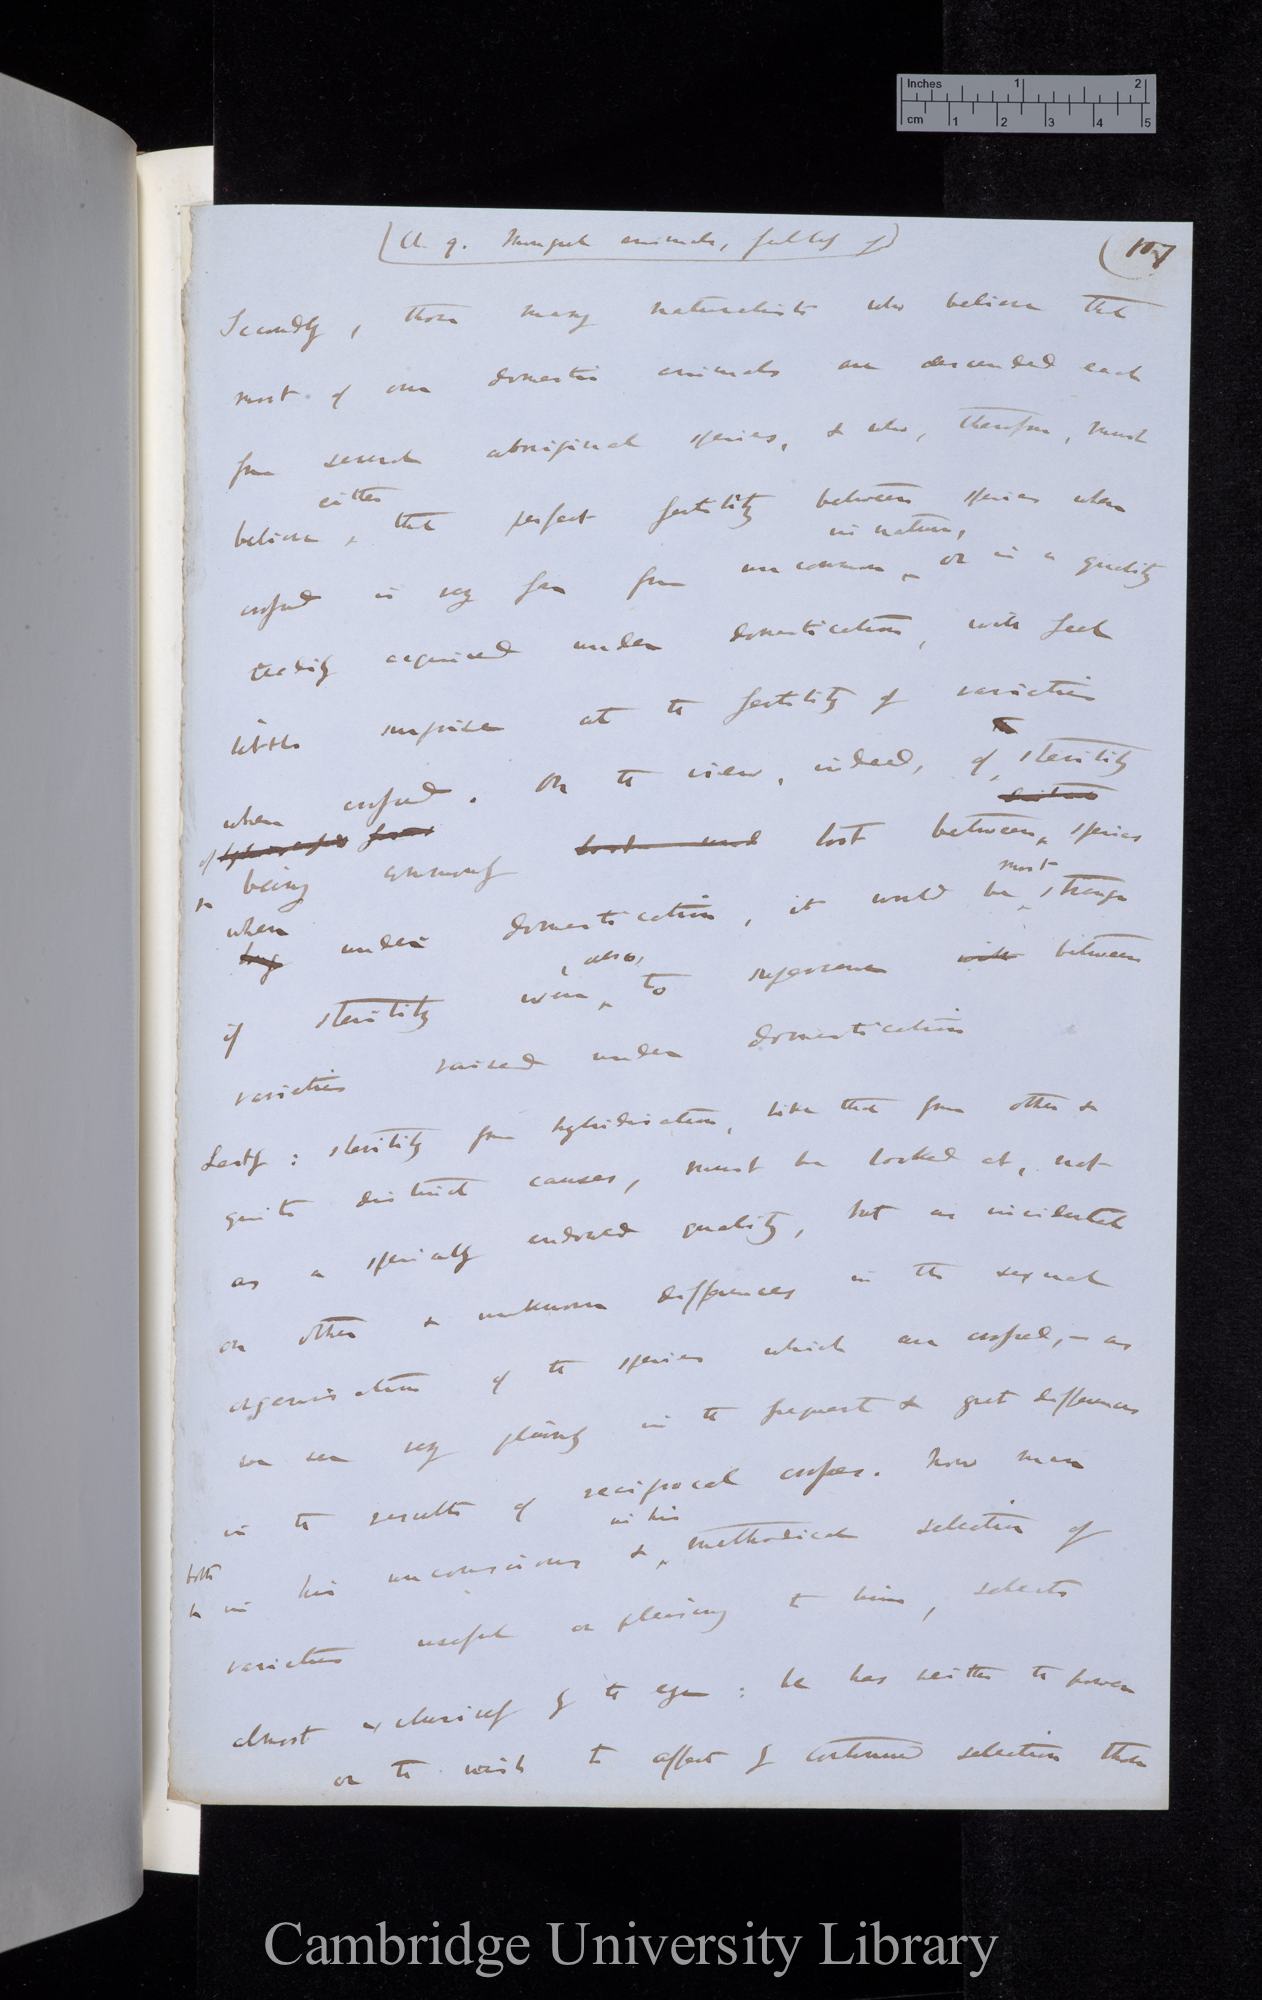 Inches 1 2
cm 1 2 3 4 5
(Ch. 9. Mongrel animals, fertility of)
(107
Secondly, those many naturalists who believe that
most of our domestic animals are descended each
from several aboriginal species, & who, therefore, must
believe either that perfect fertility between species when
crossed is very far from uncommon in nature, or is a quality
readily acquired under domestication, will feel
little surprise at the fertility of varieties
when crossed. On the view, indeed, of sterility
being commonly lost between species
when under domestication, it would be most strange
if sterility were, also, to supervene between
varieties raised under domestication
Lastly: sterility from hybridisation, like that from other &
quite distinct causes, must be looked at, not
as a specially endowed quality, but as incidental
on other & unknown differences in the sexual
organisation of the species which are crossed,— as
we see very plainly in the frequent & great differences
in the results of reciprocal crosses. Now man
both in his unconscious & in his methodical selection of
varieties useful or pleasing to him, selects
almost exclusively by the eye: he has neither the power
or the wish to affect by continued selection those
Cambridge University Library